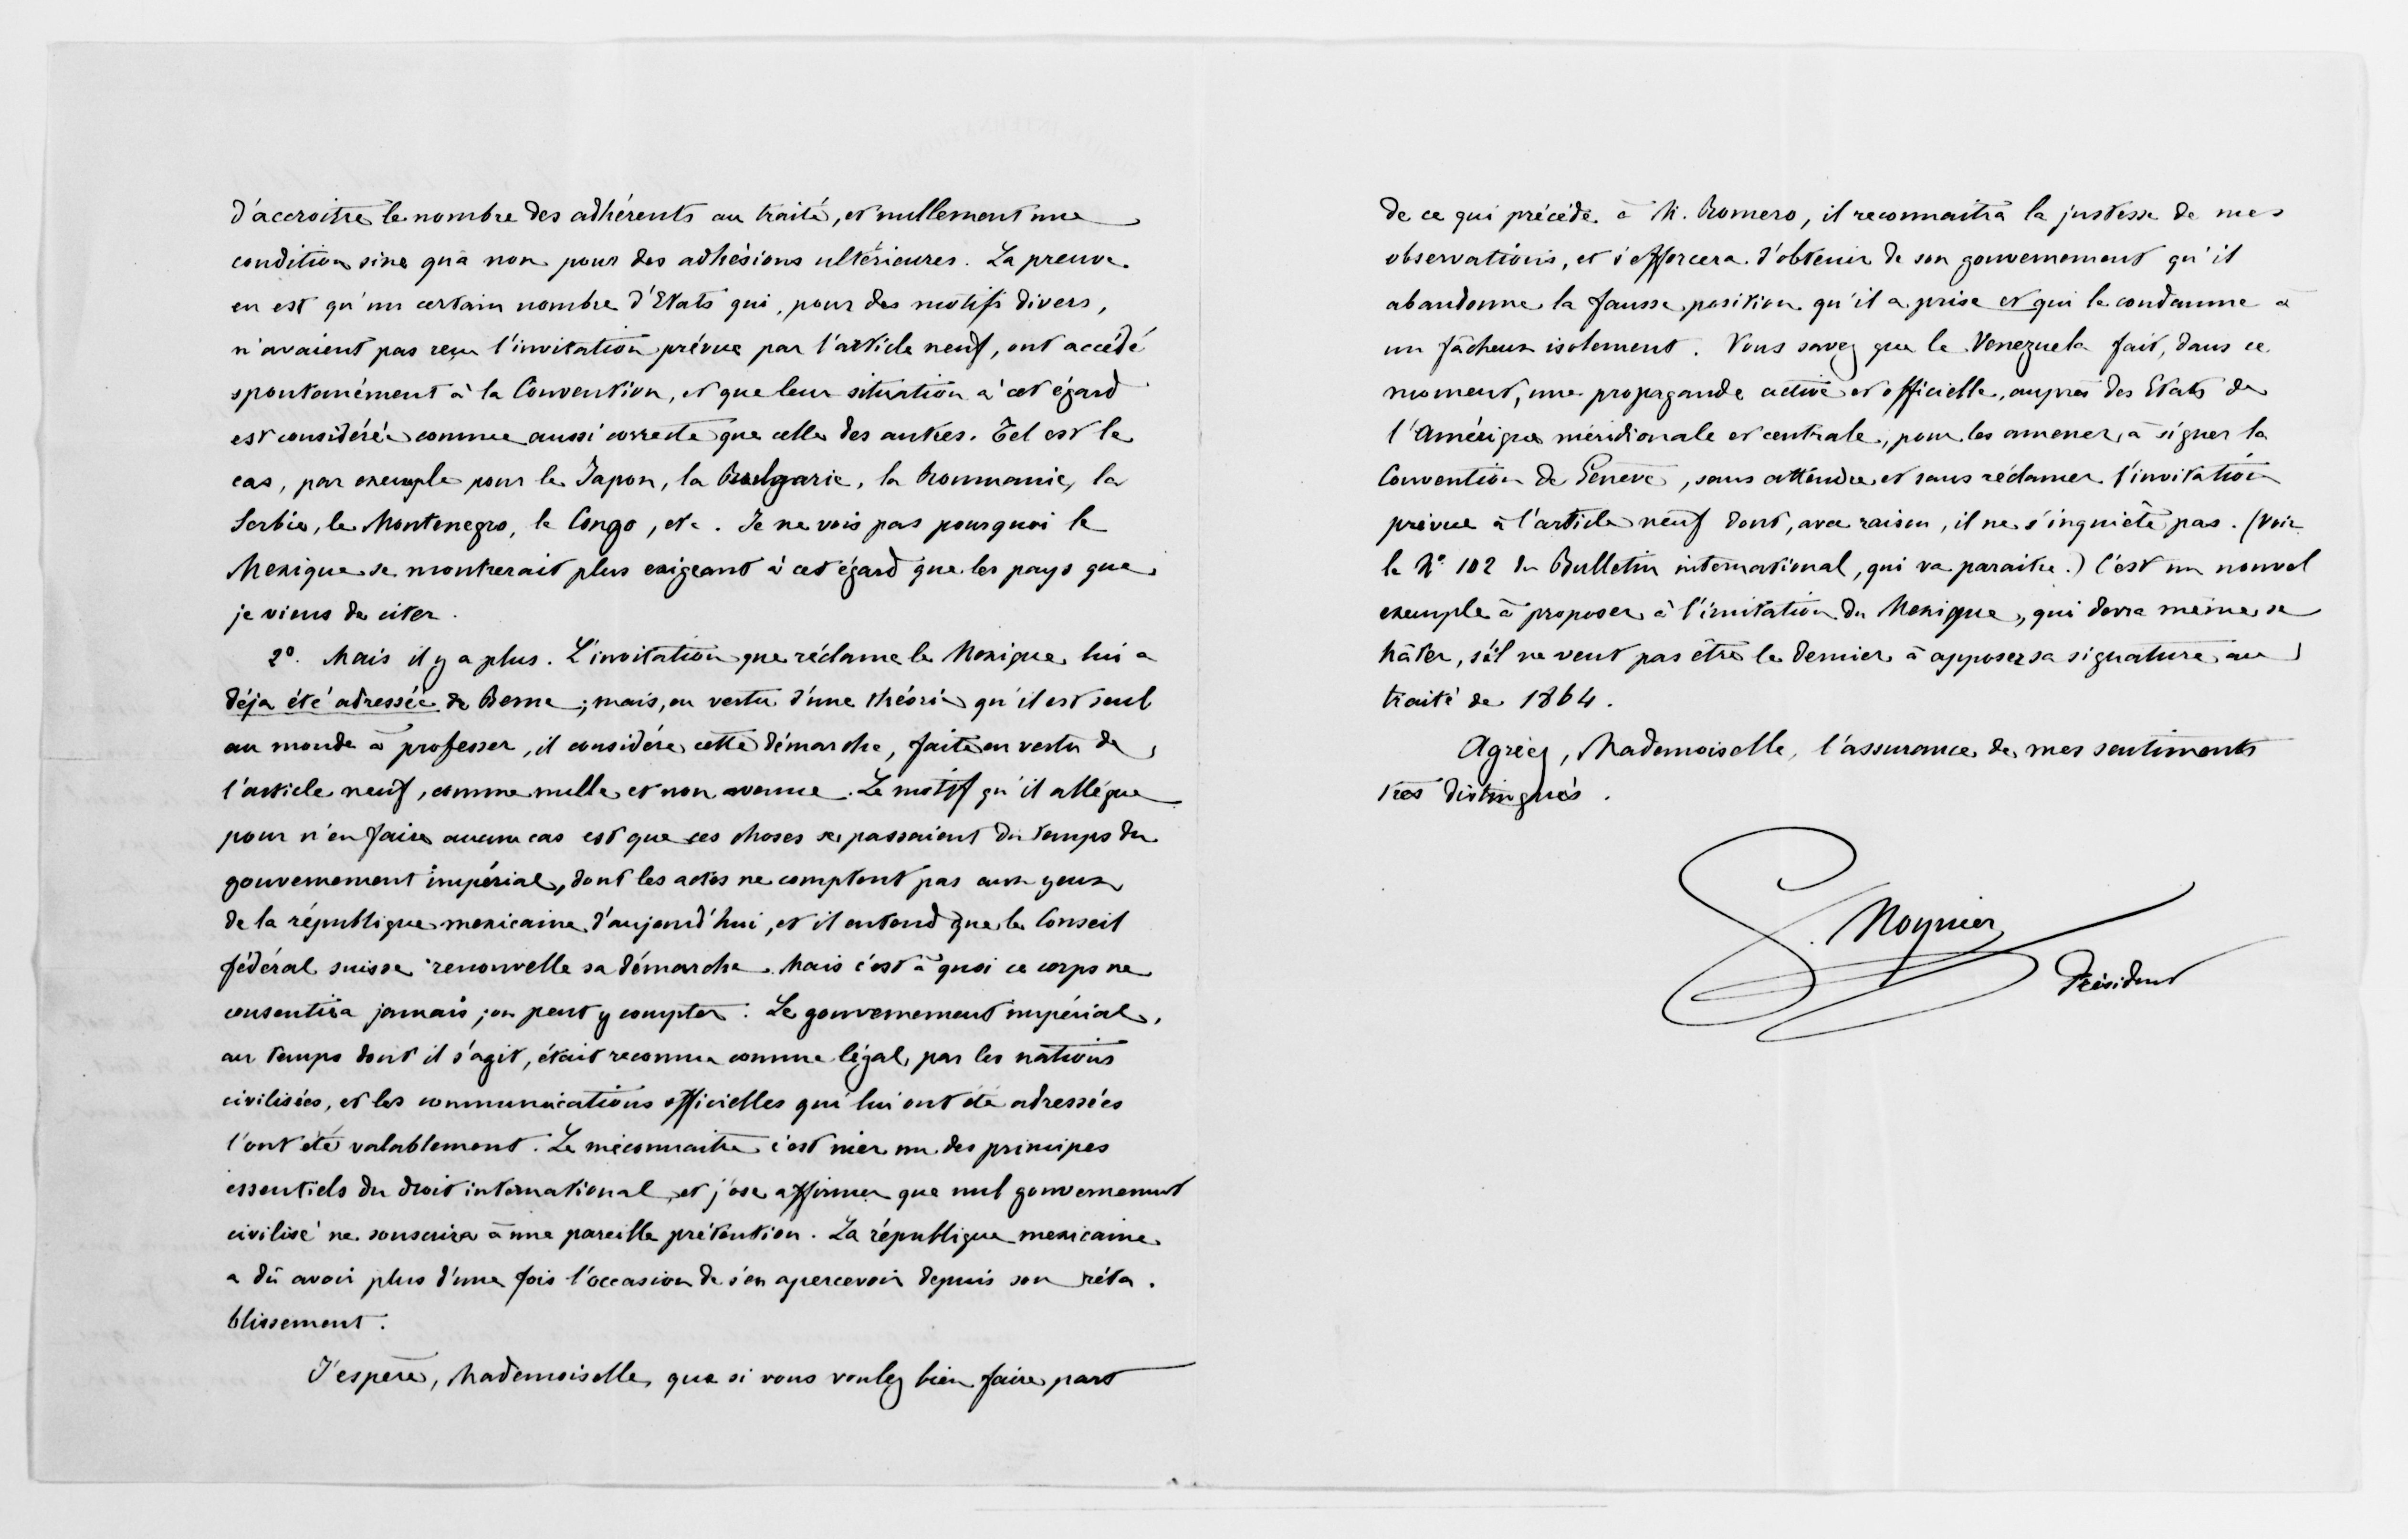 d'accroître le nombre des adhérents au traité, et nullement une
condition sine qua non pour des adhésions ultérieures. La preuve
en est qu'un certain nombre d'Etats qui, pour des motifs divers,
n'avaient pas reçu l'invitation prévue par l'article neuf, ont accédé
spontanément à la Convention, et que leur situation à cet égard
est considérée comme aussi correcte que celle des autres. Tel est le
cas, par exemple pour le Japon, la Bulgarie, la Roumanie, la
Serbie, le Montenegro, le Congo, etc. Je ne vois pas pourquoi le
Mexique se montrerait plus exigeant à cet égard que les pays que
je viens de citer.
2°. Mais il y a plus. L'invitation que réclame le Mexique lui a
déja été adressée de Berne; mais, en vertu d'une théorie qu'il est seul
au monde à professer, il considère cette démarche, faite en vertu de
l'article neuf, comme nulle et non avenue. Le motif qu'il allègue
pour n'en faire aucun cas est que ces choses se passaient du temps du
gouvernement impérial, dont les actes ne comptent pas aux yeux
de la république mexicaine d'aujourd'hui, et il entend que le Conseil
fédéral suisse renouvelle sa démarche. Mais c'est à quoi ce corps ne
consentira jamais; on peut y compter. Le gouvernement impérial,
au temps dont il s'agit, était reconnu comme légal par les nations
civilisées, et les communications officielles qui lui ont été adressées
l'ont été valablement. Le méconnaitre c'est nier un des principes
essentiels du droit international, et j'ose affirmer que nul gouvernement
civilisé ne souscrira à une pareille prétention. La république mexicaine
a dû avoir plus d'une fois l'occasion de s'en apercevoir depuis son réta-
blissement.
J'espère, Mademoiselle, que si vous voulez bien faire part
de ce qui précède à M. Romero, il reconnaitra la justesse de mes
observations, et s'efforcera d'obtenir de son gouvernement qu'il
abandonne la fausse position qu'il a prise et qui le condamne à
un fâcheux isolement. Vous savez que le Venezuela fait, dans ce
moment, une propagande active et officielle, auprès des Etats de
l'Amérique méridionale et centrale, pour les amener à signer la
Convention de Genève, sans attendre et sans réclamer l'invitation
prévue à l'article neuf dont, avec raison, il ne s'inquiète pas. (Voir
le N° 102 du Bulletin international, qui va paraitre.) C'est un nouvel
exemple à proposer à l'imitation du Mexique, qui devra même se
hâter, s'il ne veut pas être le dernier à apposer sa signature au
traité de 1864.
Agréez, Mademoiselle, l'assurance de mes sentiments
très distingués.
G. Moynier
Président